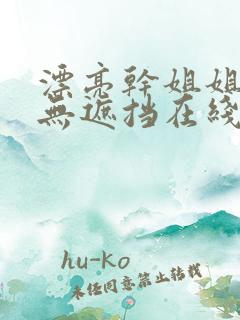 漂亮幹姐姐
無遮挡在綫
hu-ko
未经同意禁止转载